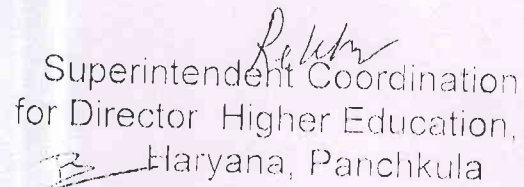 Superintendent Coordination
for Director Higher Education,
Haryana, Panchkula